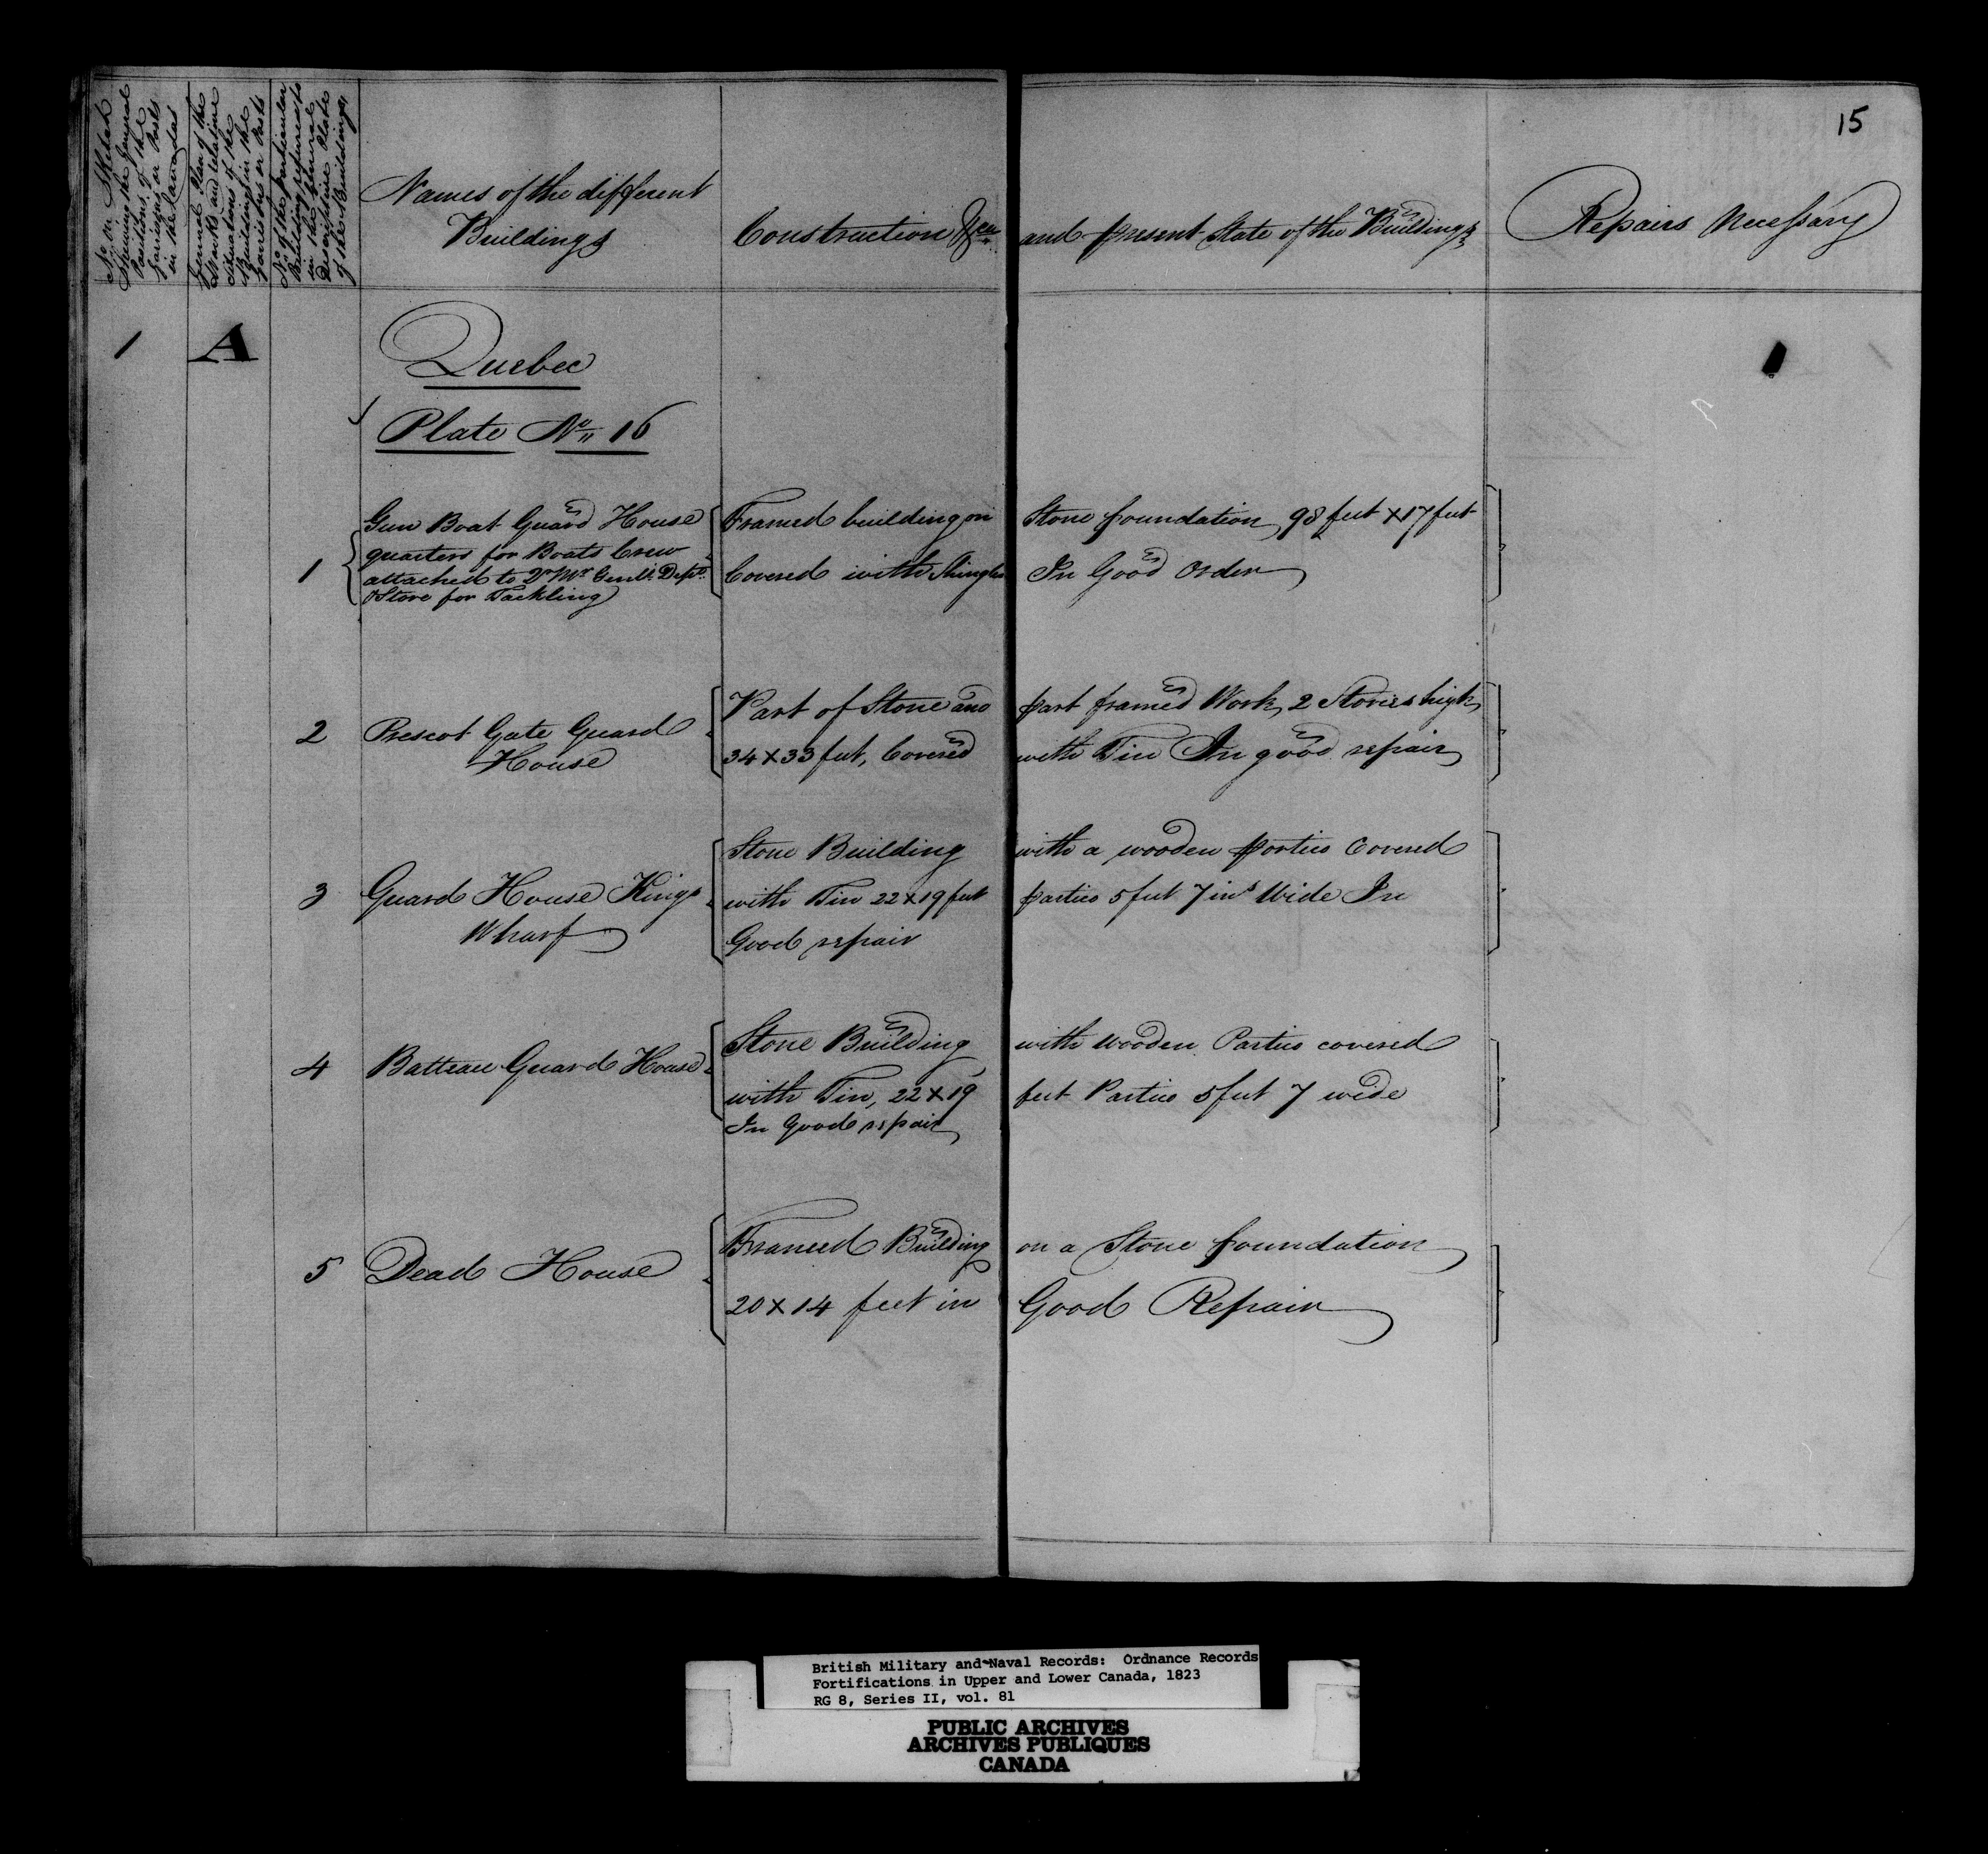 15
No. in Sketch
Shewing the General
Positions of the
Garrisons or Posts
in the Canadas
General Plan of the
Works and relative
situations of the
Buildings in the
Garrisons or Posts
No. of the particular
Building referred to
in the general
descriptive Plate
of the Buildings
Names of the different
Buildings
Construction &ca and present State of the Buildings
Repairs Necessary
1 A
Quebec
Plate No. 16
1 Gun Boat Guard House
quarters for Boats Crew
attached to Qr Mr Genl's Dept.
& Store for Tackling
Framed building on Stone foundation 98 feet x 17 feet
Covered with Shingles In Good Order
2 Prescot Gate Guard
House
Part of Stone and part framed Work, 2 Stories high,
34 x 33 feet, Covered with Tin In good repair
3 Guard House Kings
Wharf
Stone Building with a wooden portico Covered
with Tin 22 x 19 feet portico 5 feet 7 ins Wide In
Good repair
4 Batteau Guard House
Stone Building with wooden Portico covered
with Tin, 22 x 19 feet Portico 5 feet 7 wide
In Good repair
5 Dead House
Framed Building on a Stone foundation
20 x 14 feet in Good Repair
British Military and Naval Records: Ordnance Records
Fortifications in Upper and Lower Canada, 1823
RG 8, Series II, vol. 81
PUBLIC ARCHIVES
ARCHIVES PUBLIQUES
CANADA